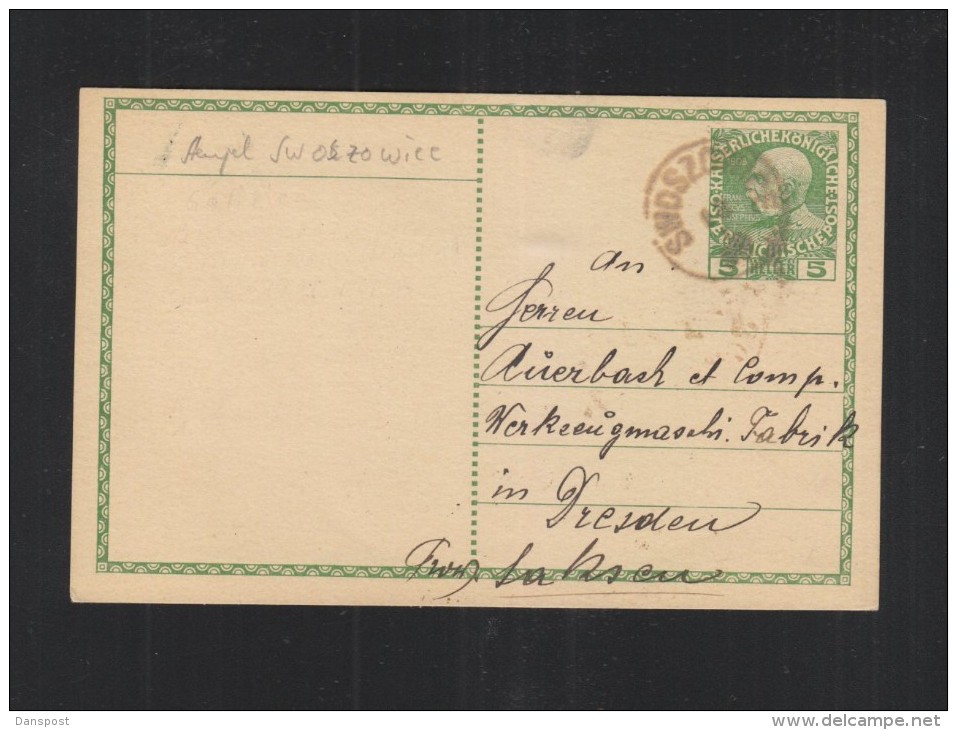 Stempel SWOSZOWICE
SWOSZO
KAISERLICHE KÖNIGLICHE
ÖSTERREICHISCHE POST
5 HELLER 5
An
Herren
Aůerbach et Comp.
Werkzeůgmaschi. Fabrik
in Dresden
Prov. Saksen
Danspost
www.delcampe.net